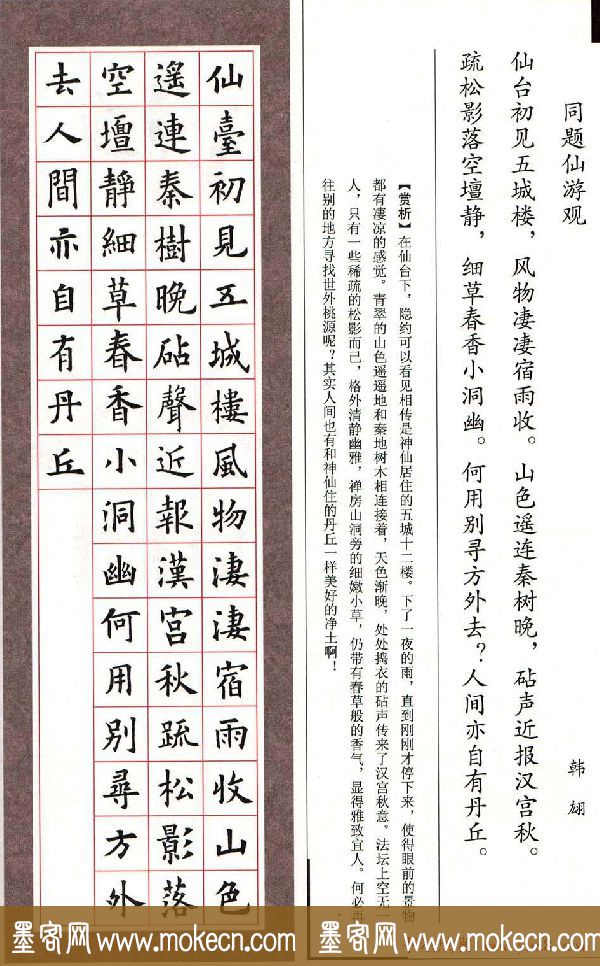 同题仙游观 韩翃
仙台初见五城楼，风物凄凄宿雨收。山色遥连秦树晚，砧声近报汉宫秋。
疏松影落空壇静，细草春香小洞幽。何用别寻方外去？人间亦自有丹丘。
【赏析】在仙台下，隐约可以看见相传是神仙居住的五城十二楼。下了一夜的雨，直到刚刚才停下来，使得眼前的景物
都有凄凉的感觉。青翠的山色遥遥地和秦地树木相连接着，天色渐晚，处处捣衣的砧声传来了汉宫秋意。法坛上空无一
人，只有一些稀疏的松影而已，格外清静幽雅，禅房山洞旁的细嫩小草，仍带有春草般的香气，显得雅致宜人。何必再
往别的地方寻找世外桃源呢？其实人间也有和神仙住的丹丘一样美好的净土啊！
仙臺初見五城樓風物淒淒宿雨收山色
遥連秦樹晚砧聲近報漢宮秋疏松影落
空壇靜細草春香小洞幽何用別尋方外
去人間亦自有丹丘
墨客网www.mokecn.com 墨客网www.mokecn.com